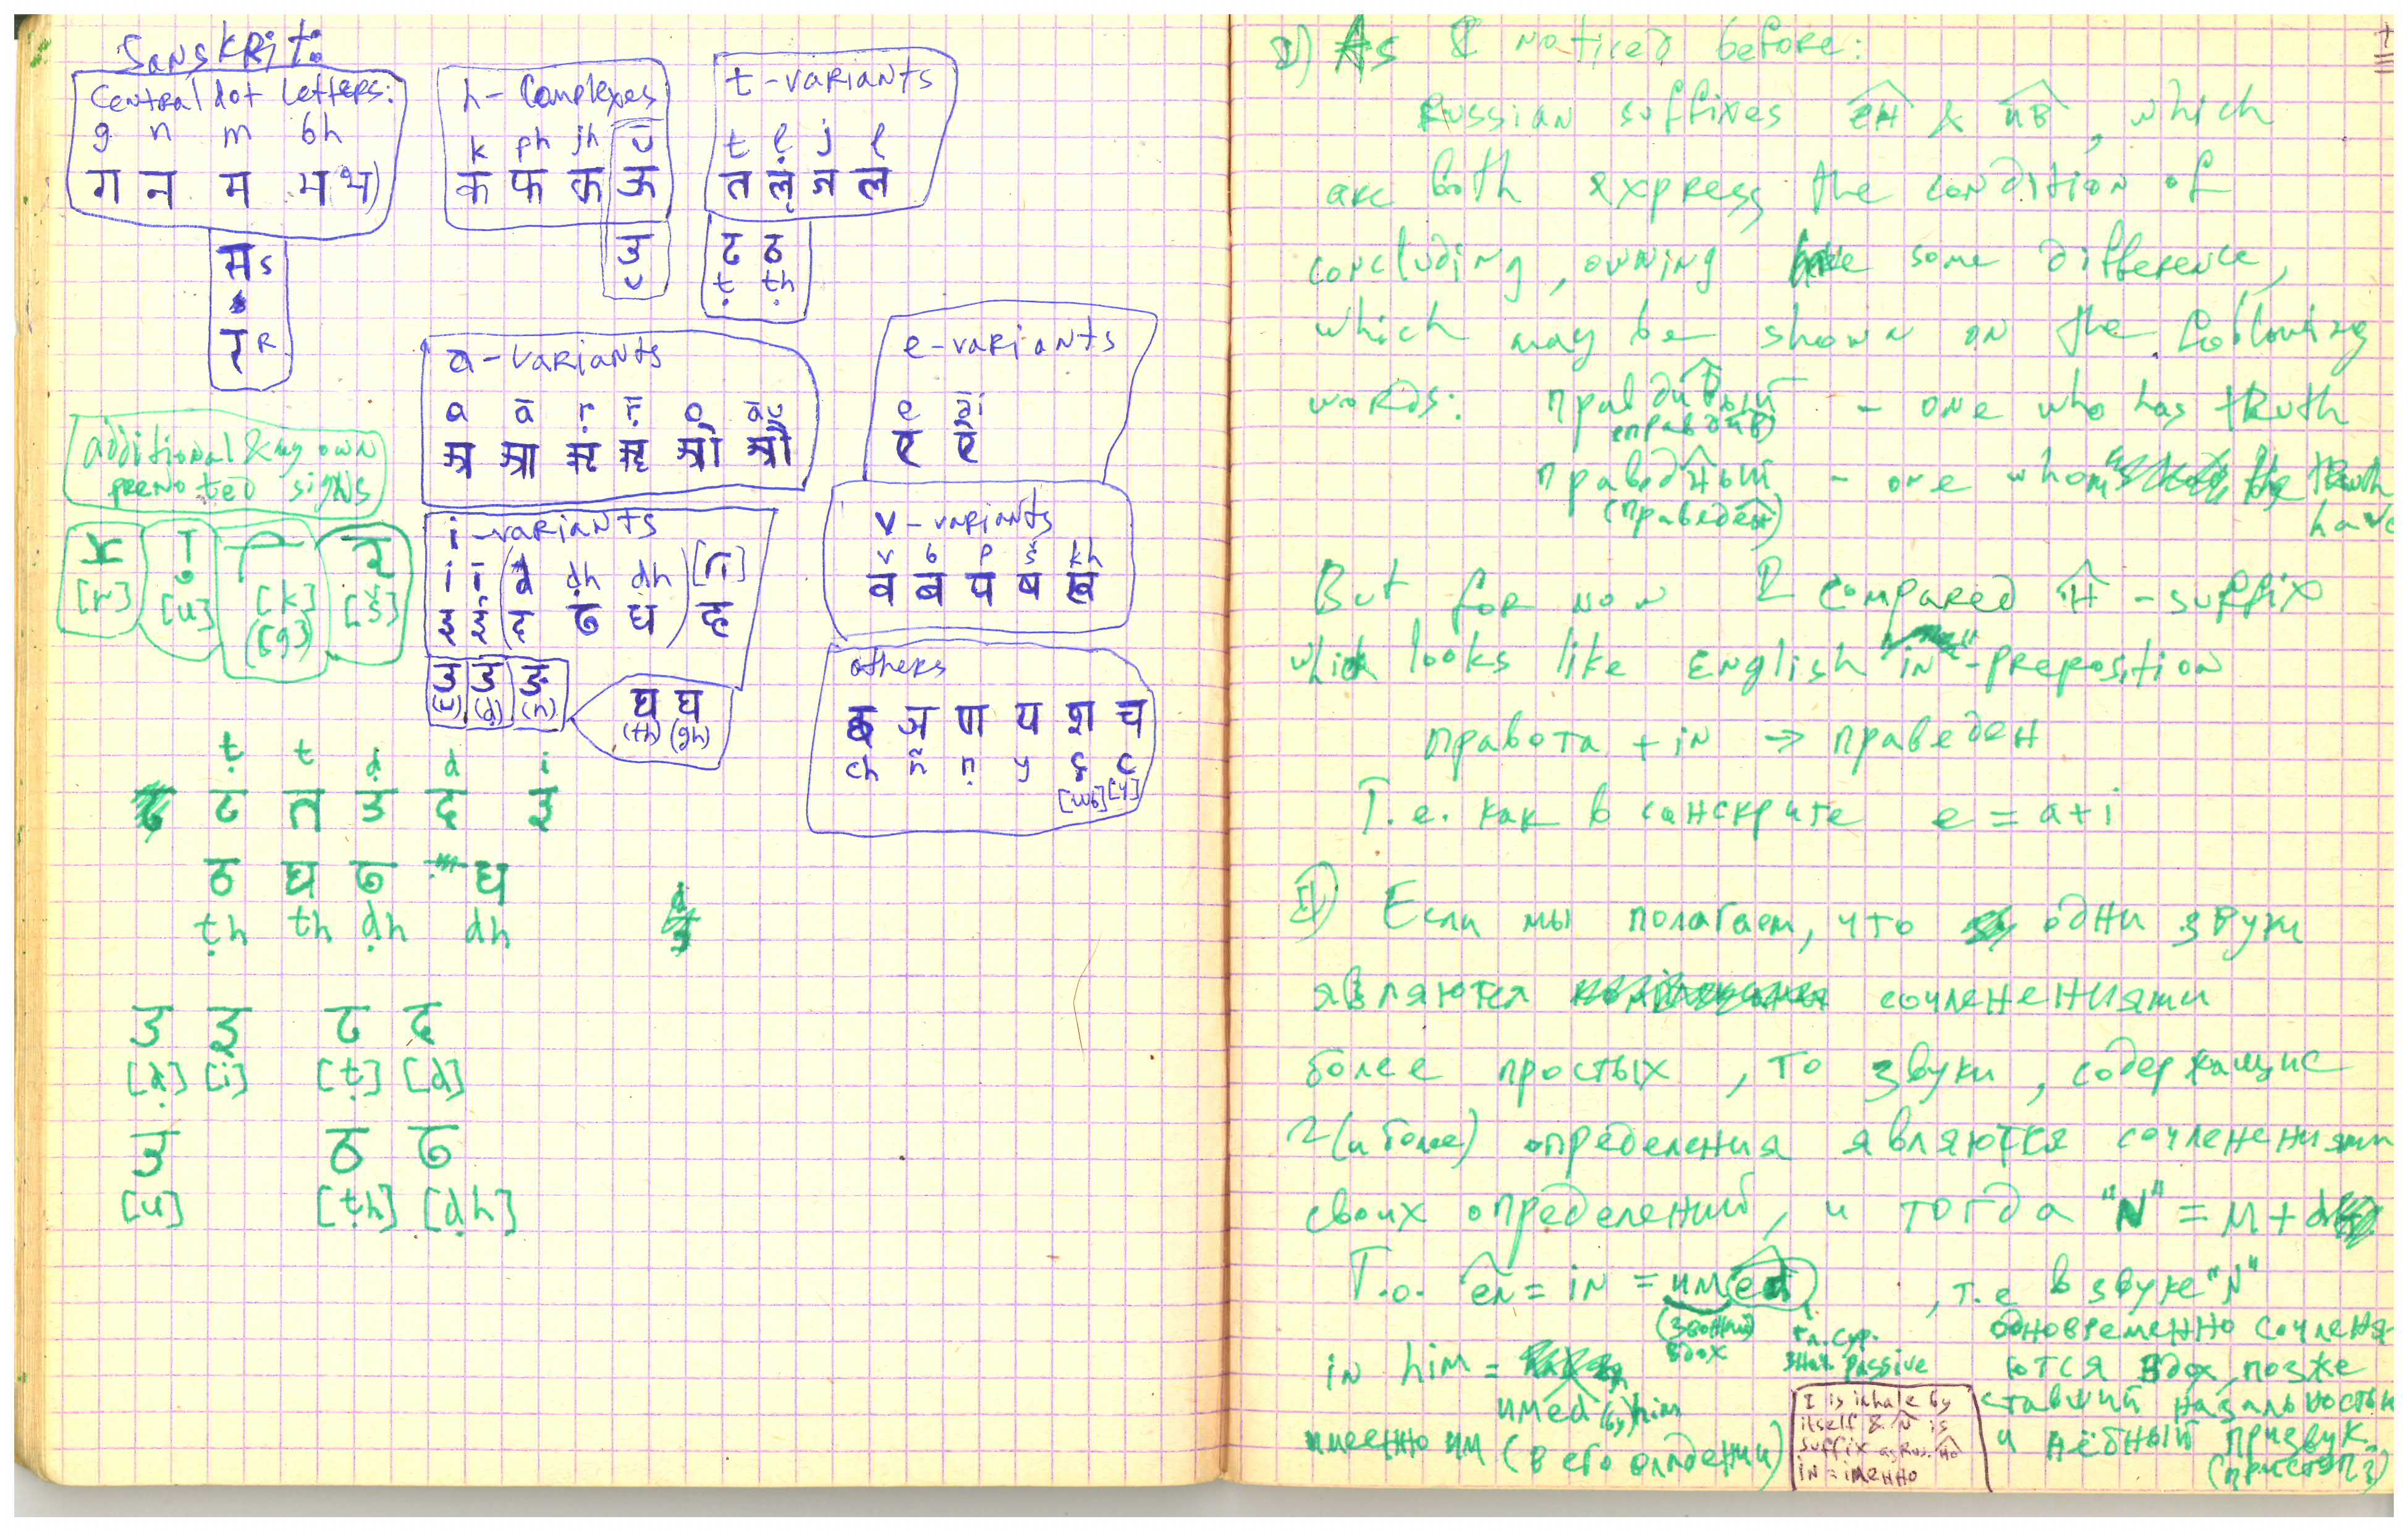 Sanskrit:
Central dot letters:
g n m bh
ग न म भ
स s
र R
h-Complexes
k ph jh ū
क फ ऊ
उ
u
t-variants
t ḷ j l
त ऌ ज ल
ट ठ
ṭ ṭh
a-variants
a ā ṛ ṝ o āu
अ आ ऋ ॠ ओ औ
e-variants
e āi
ए ऐ
additional & my own
prenoted signs
[r] [u] [k] [š]
([g])
i-variants
i ī (d ḍh dh) [ri]
इ ई (द ढ ध) ह
उ ड ङ
(u) (ḍ) (n)
घ घ
(th) (gh)
v-variants
v b p š kh
व ब प ष ख
others
छ ञ ण य श च
ch ñ ṇ y ç c
[шь] [ч]
ṭ t ḍ d i
ट त ड द इ
ठ घ ढ घ
ṭh th ḍh dh
d
ड इ ट द
[ḍ] [i] [ṭ] [d]
उ ठ ढ
[u] [ṭh] [ḍh]
As I noticed before:
Russian suffixes ен & ив, which
are both express the condition of
concluding, owning some difference,
which may be shown on the following
words: правдивый - one who has truth
(правдив)
праведный - one whom the truth
(праведен) have
But for now I compared н-suffix
which looks like English "in"-preposition
правота + in → праведен
Т.е. как в санскрите e = a+i
Если мы полагаем, что одни звуки
являются сочленениями
более простых, то звуки, содержащие
2(и более) определения являются сочленениями
своих определений, и тогда "N" = M + d
Т.о. en = in = имed, т.е в звуке "N"
(звонкий) гл. суф. одновременно сочленя-
вдох знач passive ются вдох, позже
in him = ставший назальностью
имed (by) him и нёбный призвук
именно им (в его владении) (приступ)
I is inhale by
itself & N is
suffix as Rus. но
in = iменно